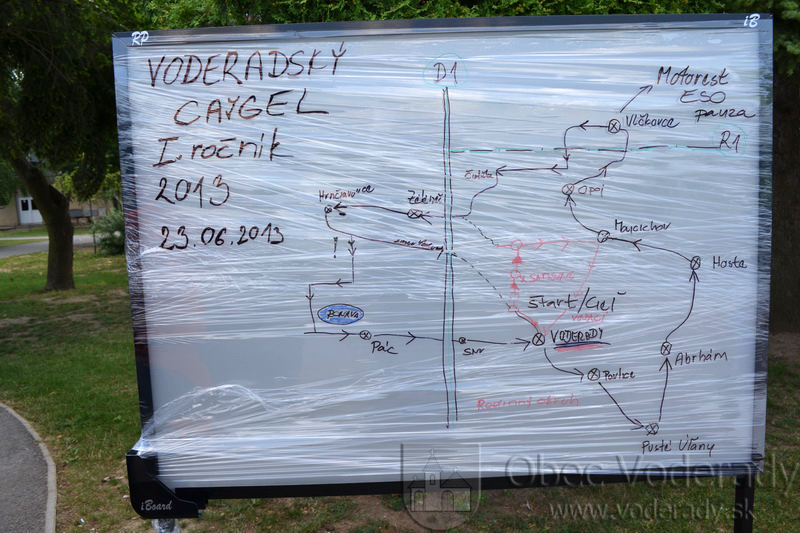 RP
iB
VODERADSKÝ
CAJGEL
I. ročník
2013
23.06.2013
D1
Motorest
ESO
pauza
Vlčkovce
R1
Opoj
Zeleneč
Majcichov
Hosta
Štart/Cieľ
VODERADY
Pác
SNV
Pavlice
Abrhám
Rodinný okruh
Pusté Úľany
iBoard
Obec Voderady
www.voderady.sk